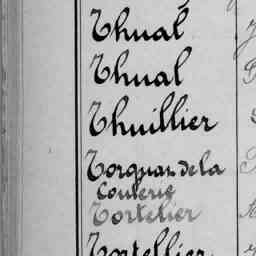 Thual
Thual
Thuillier
Torquat de la
Coulerie
Tortelier
Tortellier